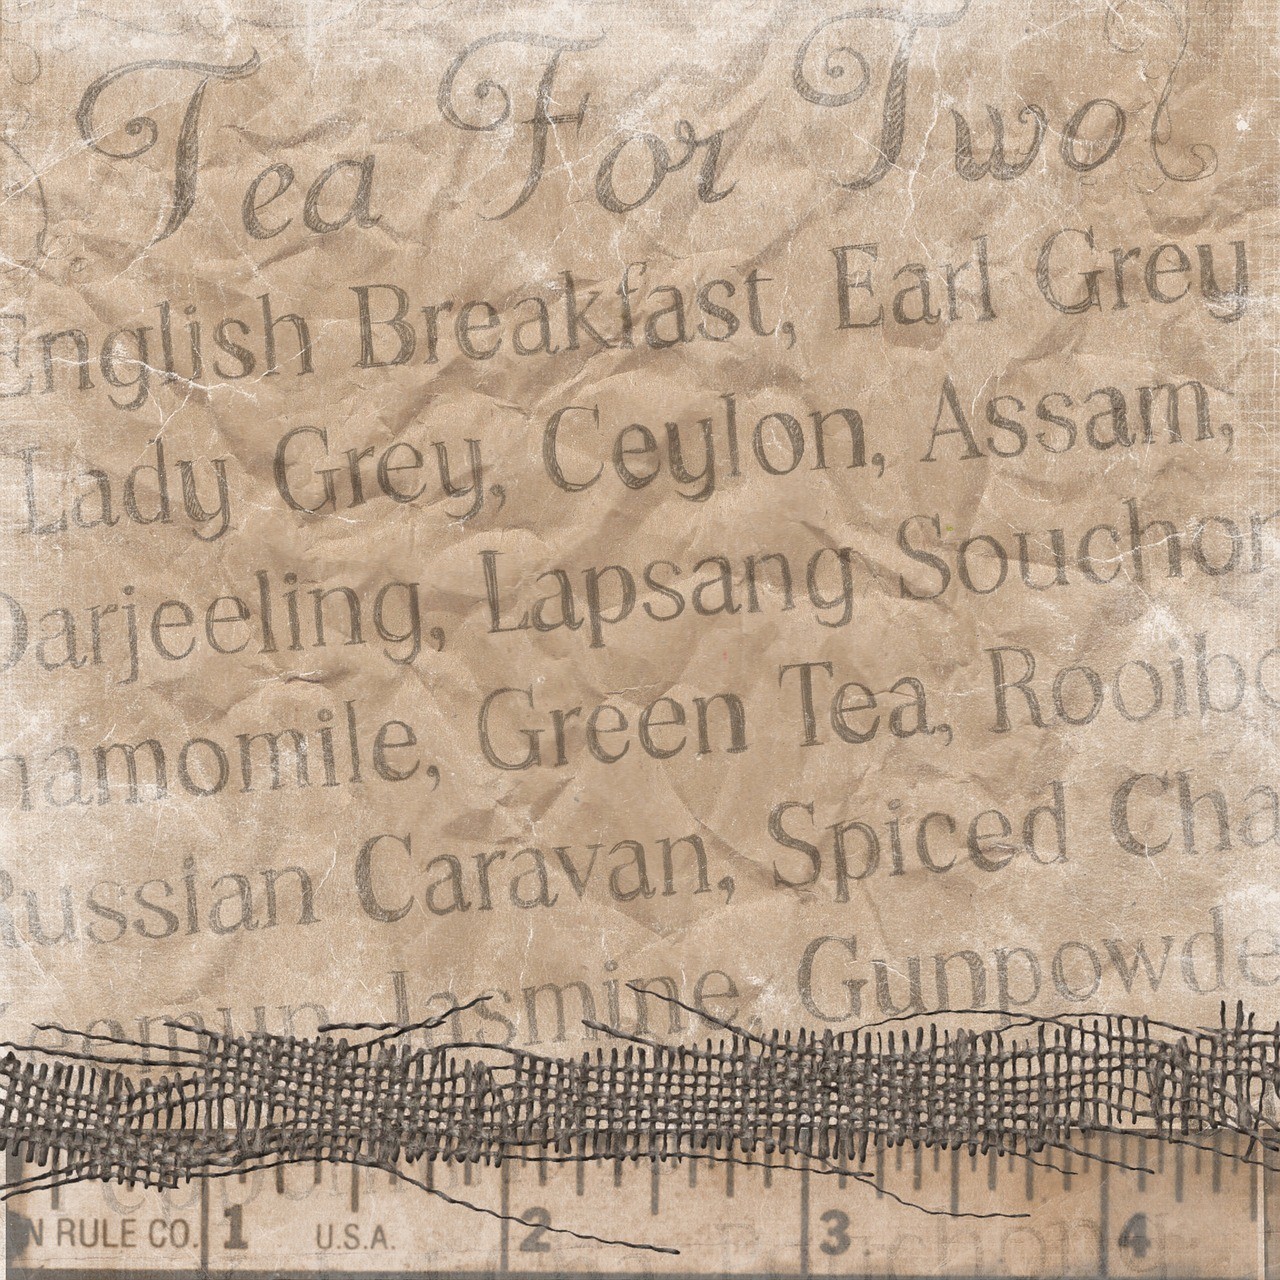 Tea For Two
English Breakfast, Earl Grey
Lady Grey, Ceylon, Assam,
Darjeeling, Lapsang Souchon
hamomile, Green Tea, Rooibo
Russian Caravan, Spiced Cha
Jasmine, Gunpowde
N RULE CO. 1 U.S.A. 2 3 4